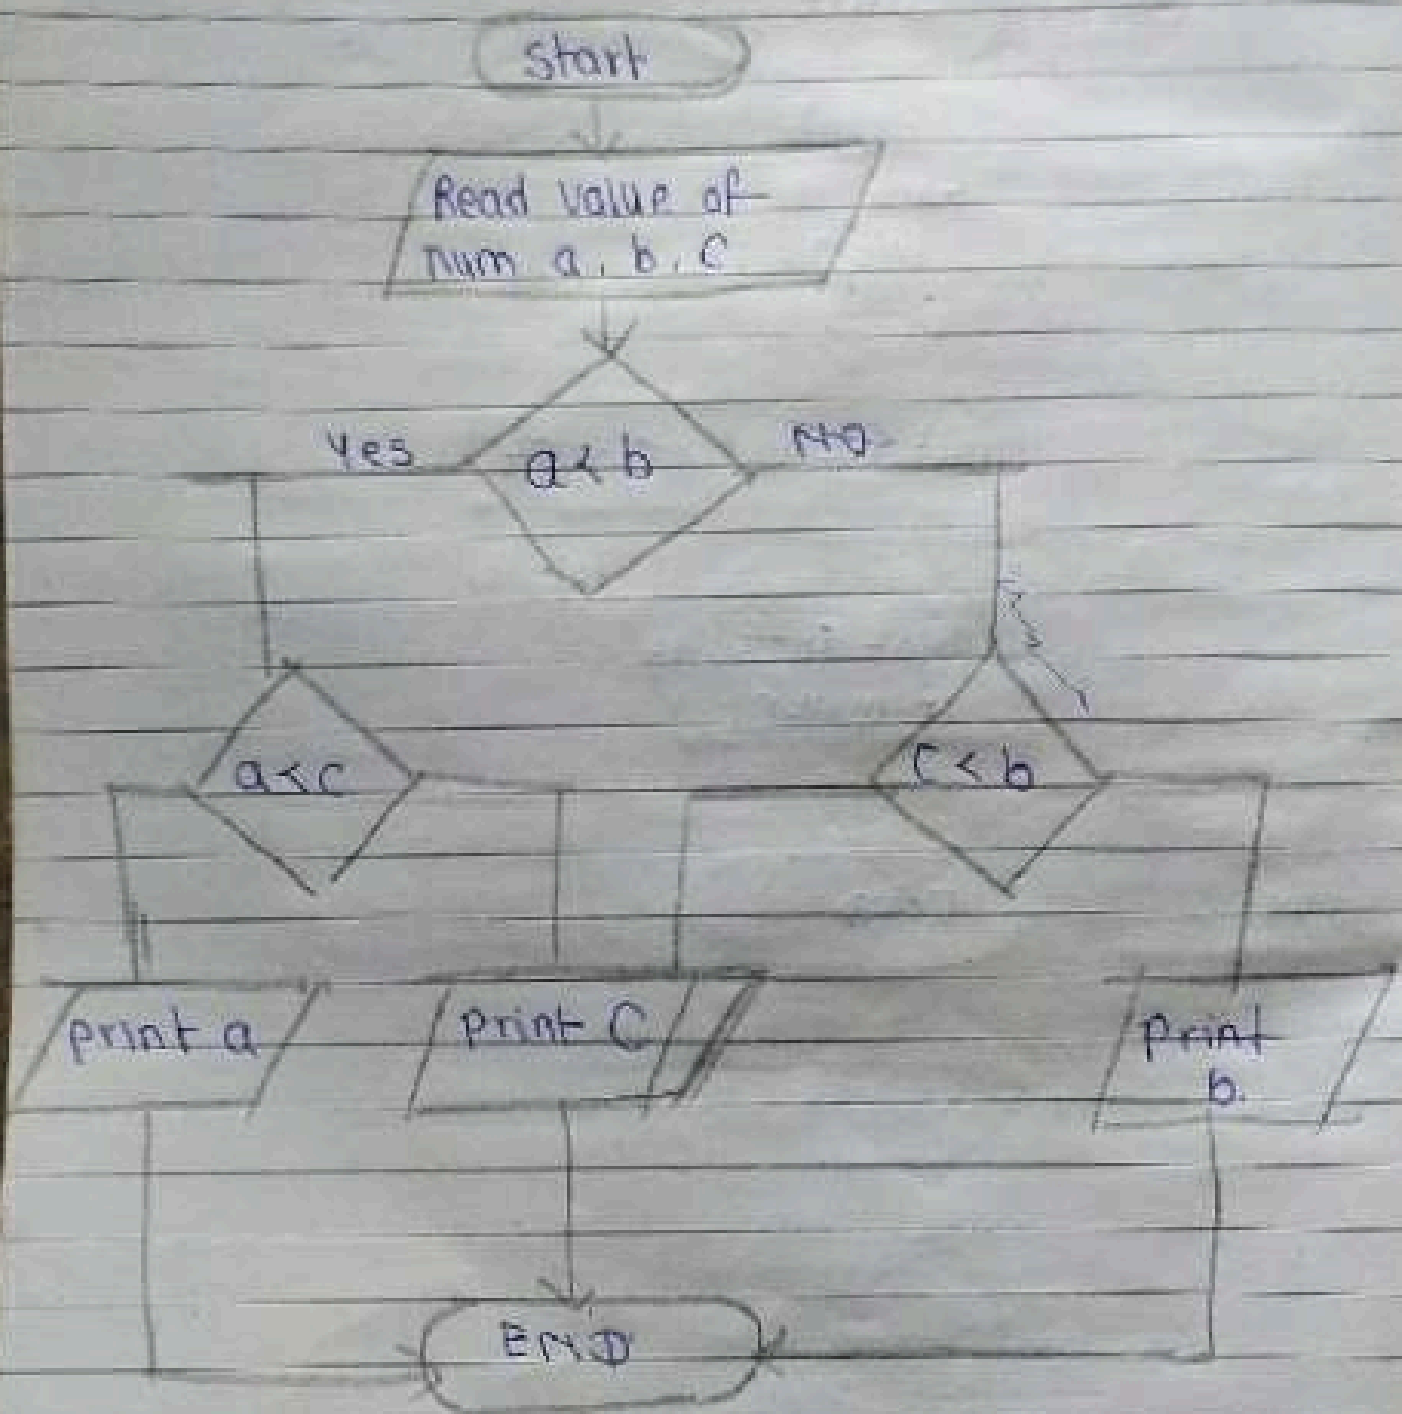 Start
Read value of
num a, b, c
Yes
a < b
No
a < c
c < b
print a
print C
print
b.
END